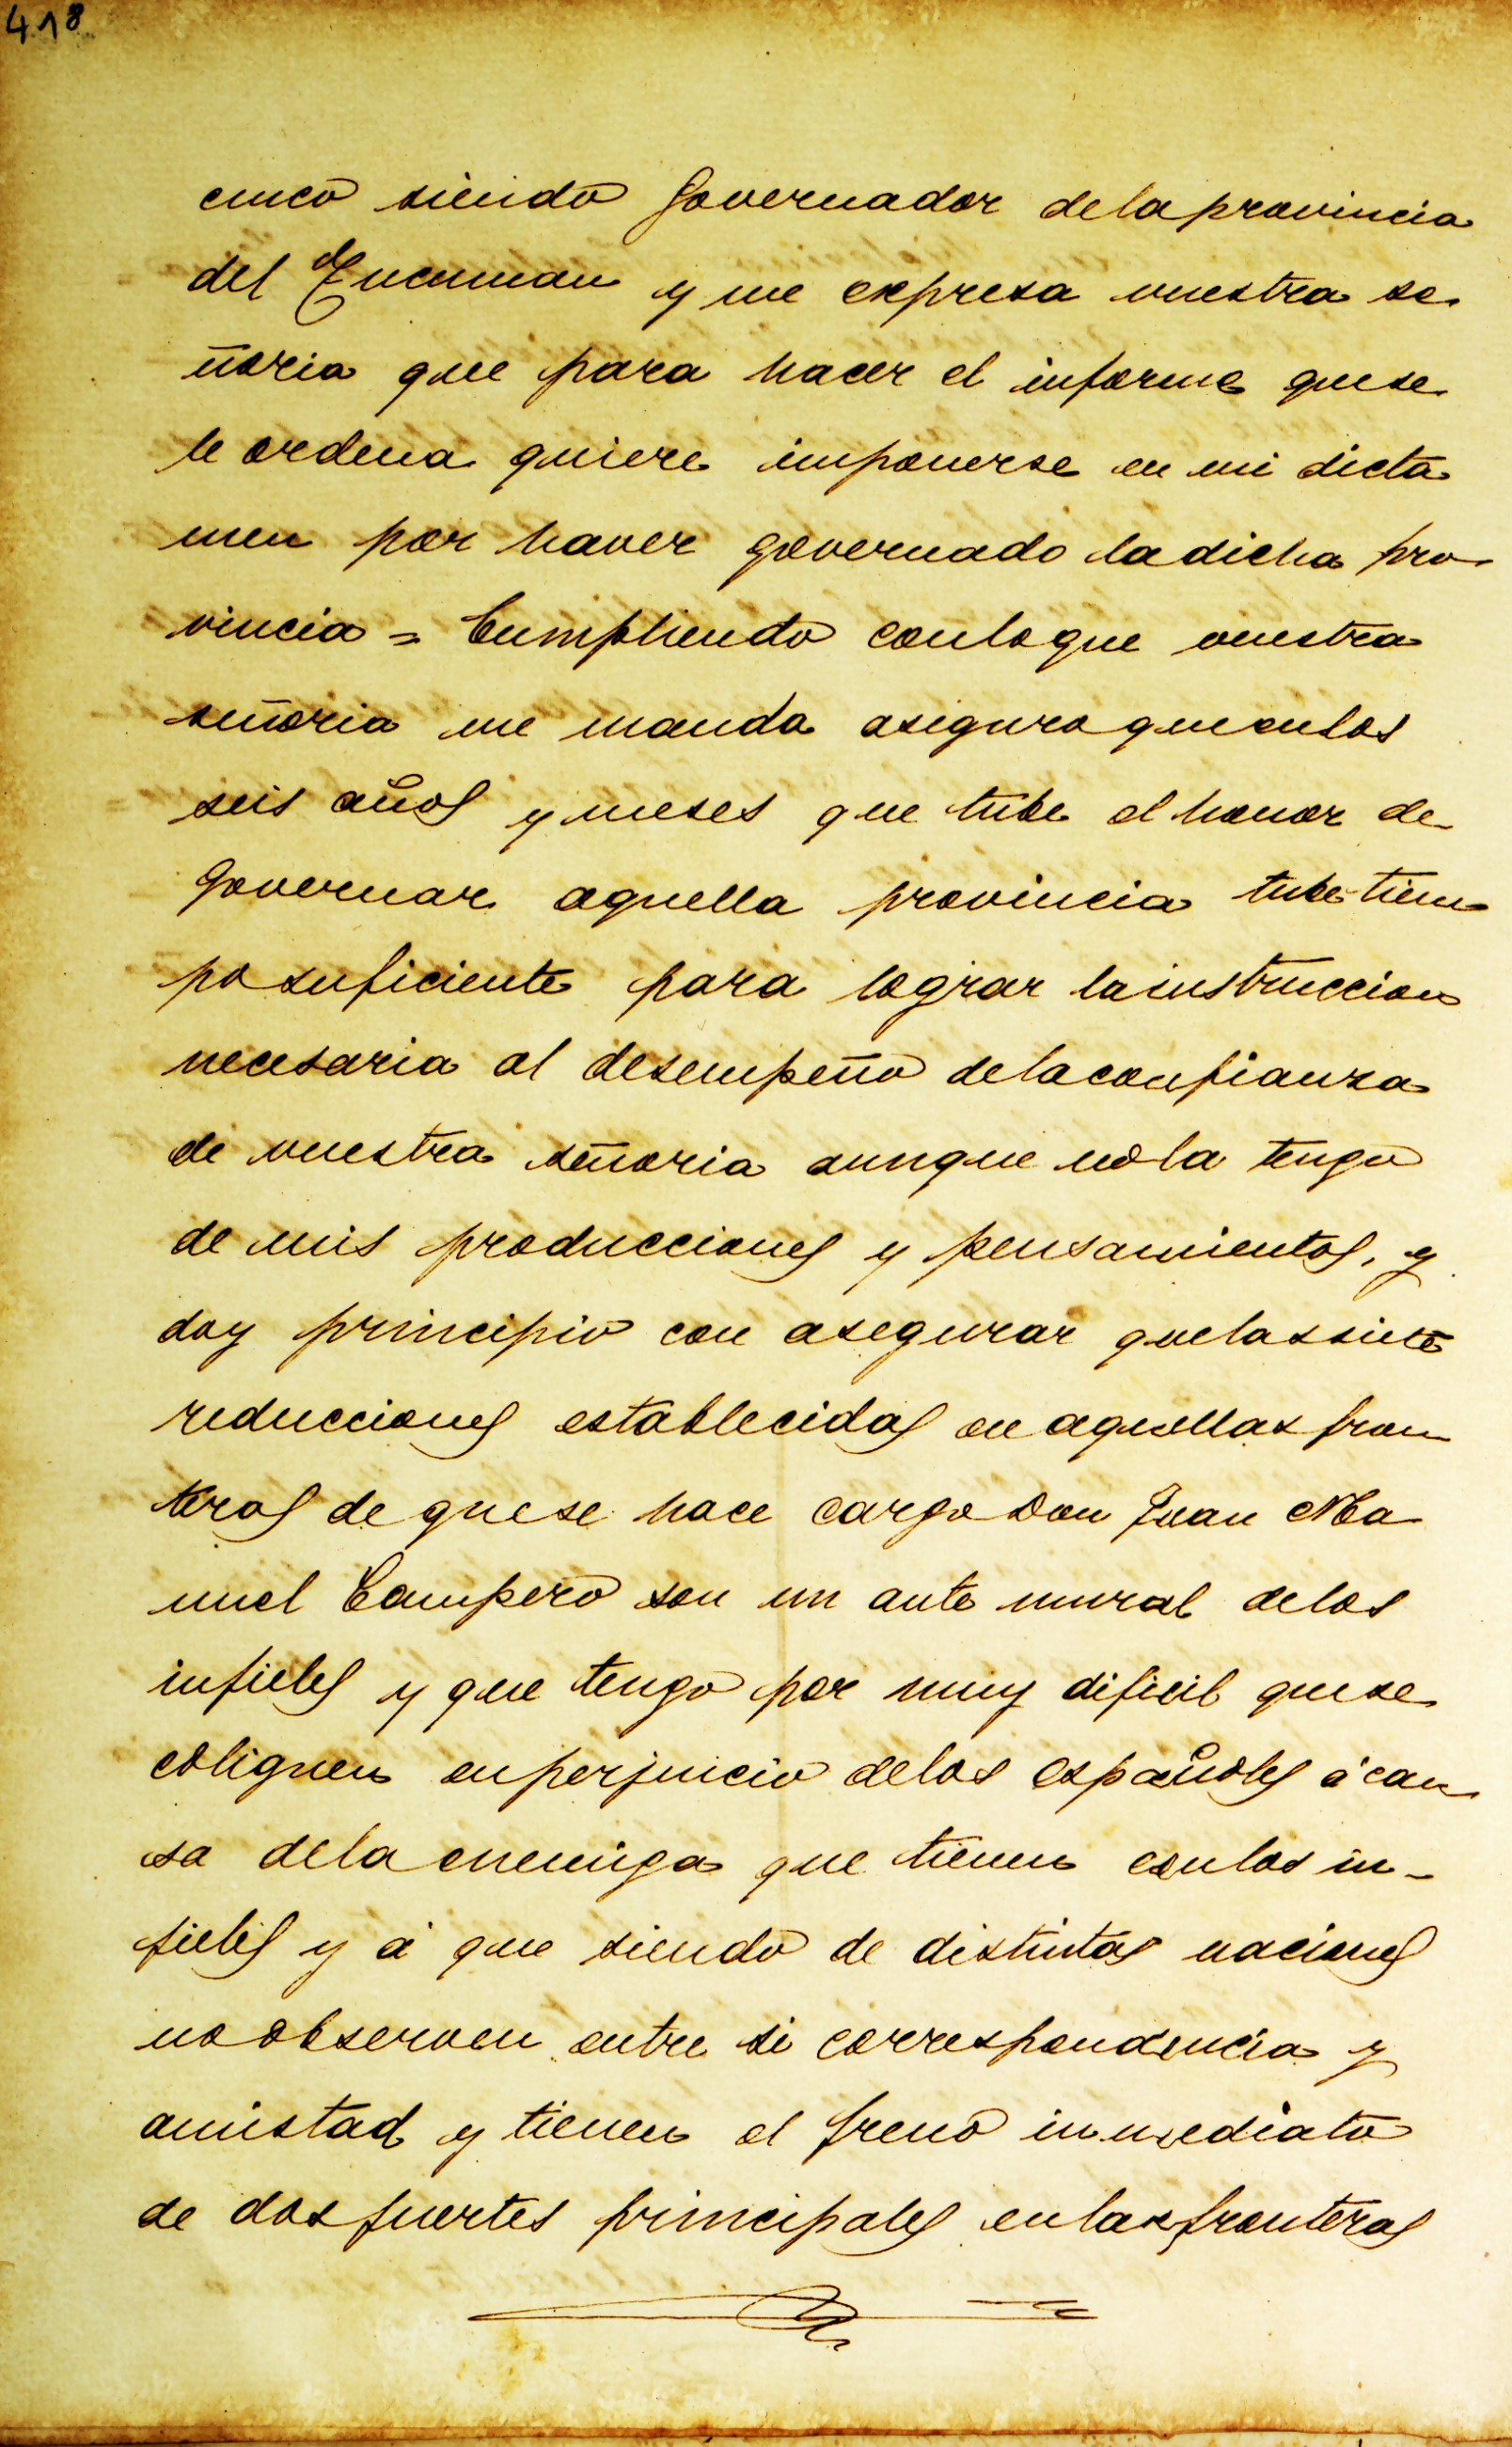 418
cinco siendo Governador dela provincia
del Tucuman y me expresa vuestra se-
ñoria que para hacer el informe quese
le ordena quiere imponerse en mi dicta
men por haver governado ladicha pro-
vincia = Cumpliendo conloque vuestra
señoria me manda aseguro queenlos
seis años y meses que tube el honor de
Governar aquella provincia tube tiem
po suficiente para lograr lainstruccion
necesaria al desempeño delaconfianza
de vuestra señoria aunque nola tengo
de mis producciones y pensamientos, y
doy principio con asegurar quelassiete
reducciones establecidas en aquellas fron
teras de quese hace cargo Don Juan Ma
nuel Campero son un ante mural delos
infieles y que tengo por muy dificil quese
coliguen enperjuicio delos españoles á cau
sa dela enemiga que tienen conlos in-
fieles y á que siendo de distintas naciones
no observen entre si correspondencia y
amistad y tienen el freno inmediato
de dos fuertes principales enlas fronteras